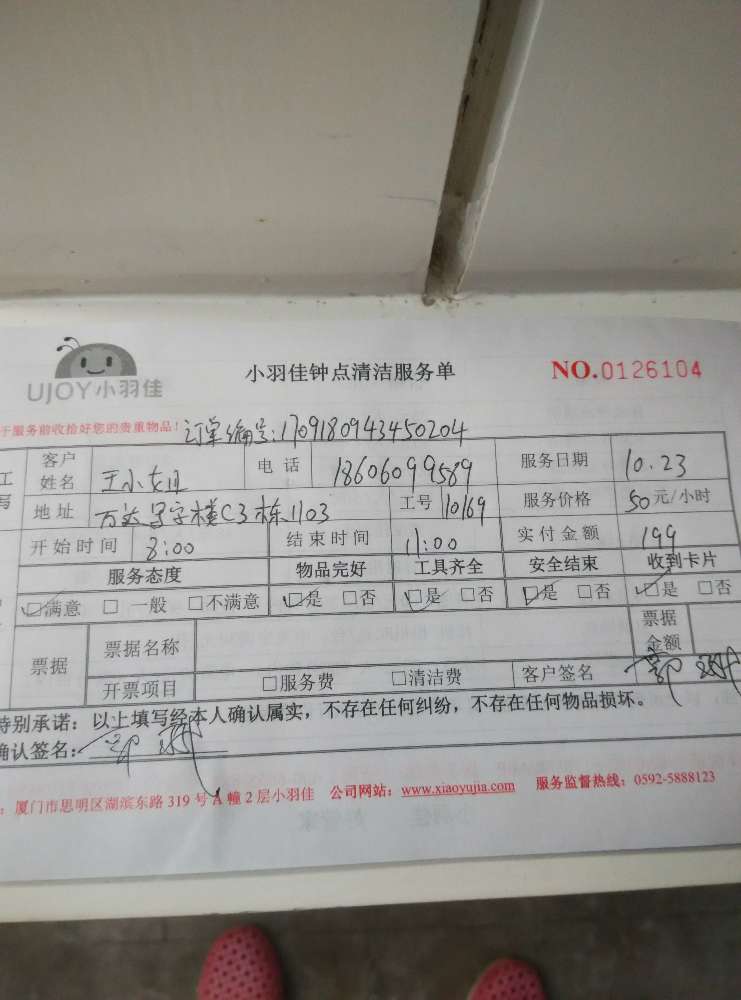 UJOY小羽佳
小羽佳钟点清洁服务单
NO.0126104
于服务前收拾好您的贵重物品! 订单编号:1709180943450204
工 客户姓名 王小姐 电话 18606099589 服务日期 10.23
写 地址 万达写字楼C3栋1103 工号 10169 服务价格 50元/小时
开始时间 8:00 结束时间 11:00 实付金额 199
服务态度 物品完好 工具齐全 安全结束 收到卡片
☑满意 □一般 □不满意 ☑是 □否 ☑是 □否 ☑是 □否 ☑是 □否
票据 票据名称 票据金额
开票项目 □服务费 □清洁费 客户签名
特别承诺:以上填写经本人确认属实,不存在任何纠纷,不存在任何物品损坏。
确认签名:
:厦门市思明区湖滨东路 319 号 A 幢 2 层小羽佳 公司网站:www.xiaoyujia.com 服务监督热线:0592-5888123